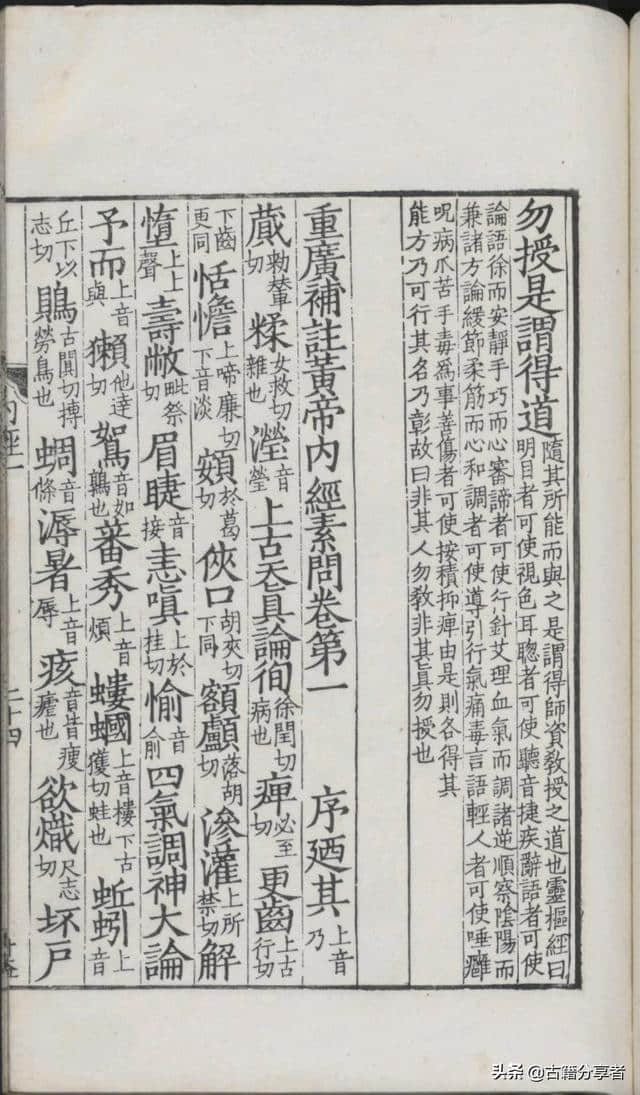 勿授是謂得道隨其所能而與之是謂得師資教授之道也靈樞經曰明目者可使視色耳聦者可使聽音捷疾辭語者可使
論語徐而安靜手巧而心審諦者可使行針艾理血氣而調諸逆順察陰陽而兼諸方論緩節柔筋而心和調者可使導引行氣痛毒言語輕人者可使唾癰
呪病爪苦手毒為事善傷者可使按積抑痺由是則各得其能方乃可行其名乃彰故曰非其人勿教非其真勿授也
重廣補註黃帝內經素問卷第一 序廼其上音乃
蕆勑輦切糅女救切雜也瀅音瑩上古天真論徇徐閏切病也痺必至切更齒上古行切
下齒更同恬憺上啼廉切下音淡頞於葛切俠口胡夾切下同額顱落胡切滲灌上所禁切解
墮上上聲壽敝毗祭切眉睫音接恚嗔上於桂切愉音俞四氣調神大論
予而上音與獺他達切鴽音如鶉也蕃秀上音煩螻蟈上音樓下古獲切蛙也蚯蚓上音
丘下以志切鵙古闃切搏勞鳥也蜩音條溽暑上音辱痎音皆瘦瘧也欲熾尺志切坏戶
內經一
二十四
头条 @古籍分享者